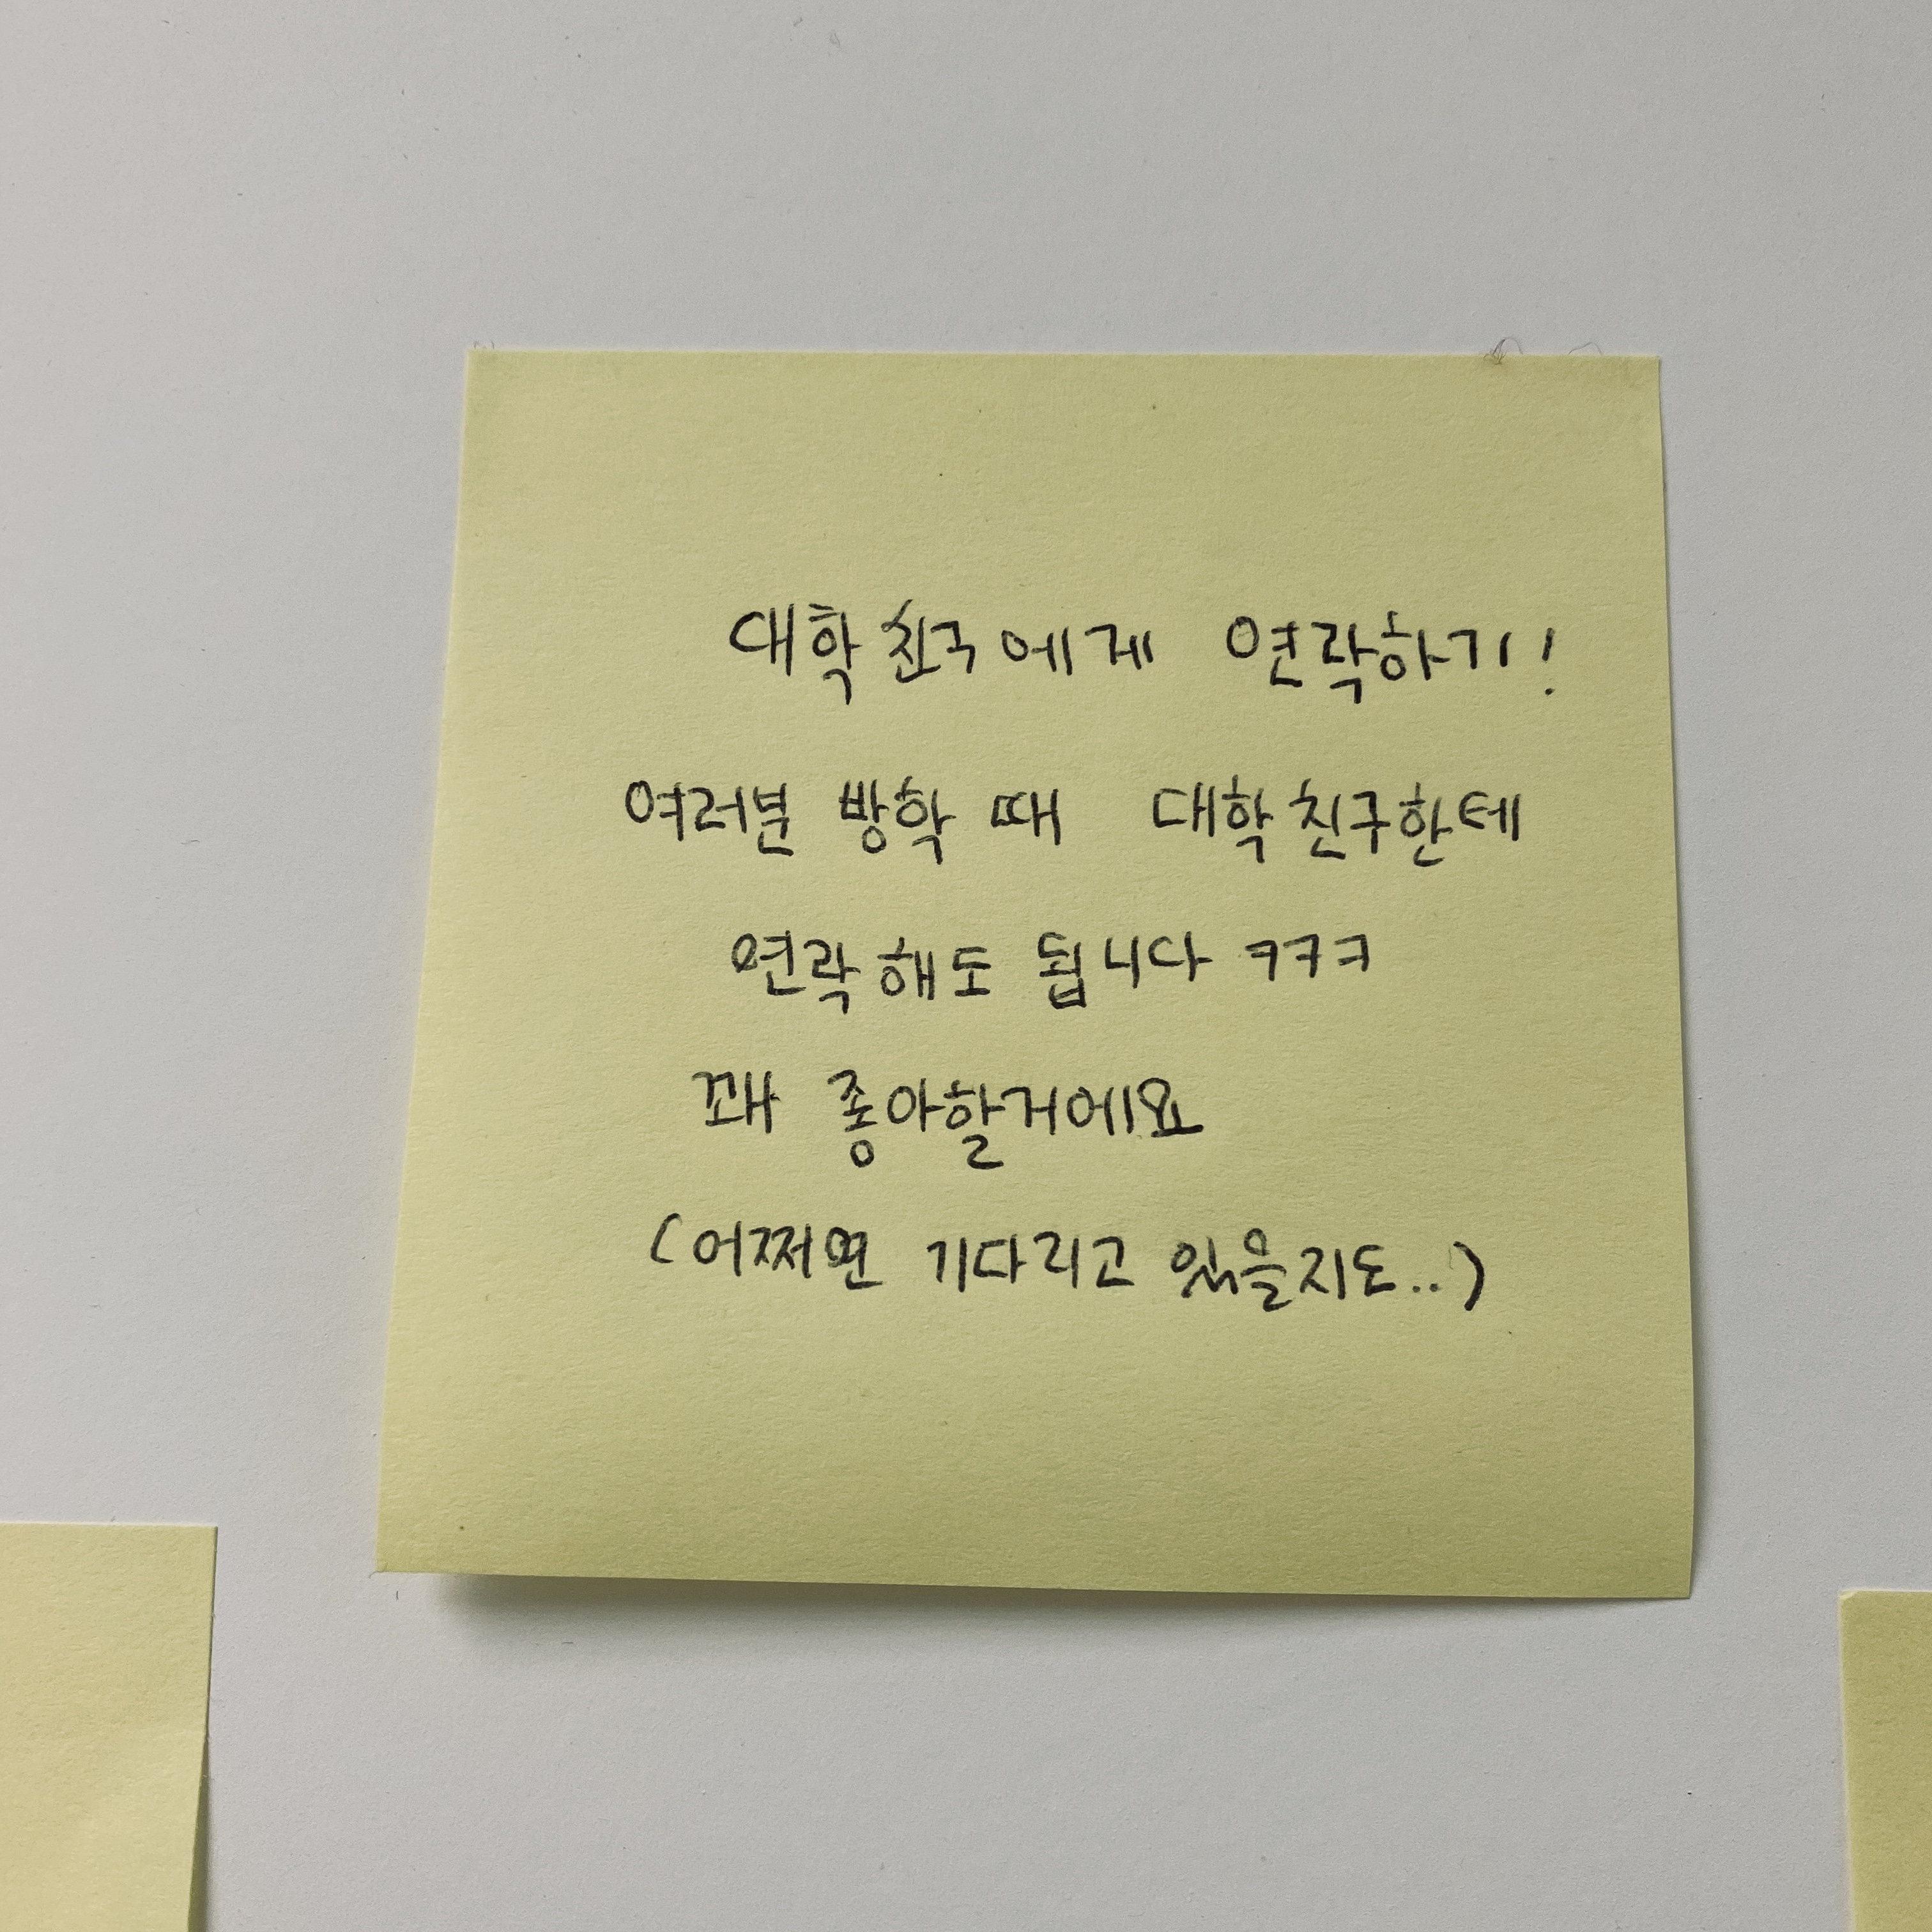 대학친구에게 연락하기!
여러분 방학 때 대학친구한테
연락해도 됩니다 ㅋㅋㅋ
꽤 좋아할거에요
(어쩌면 기다리고 있을지도..)